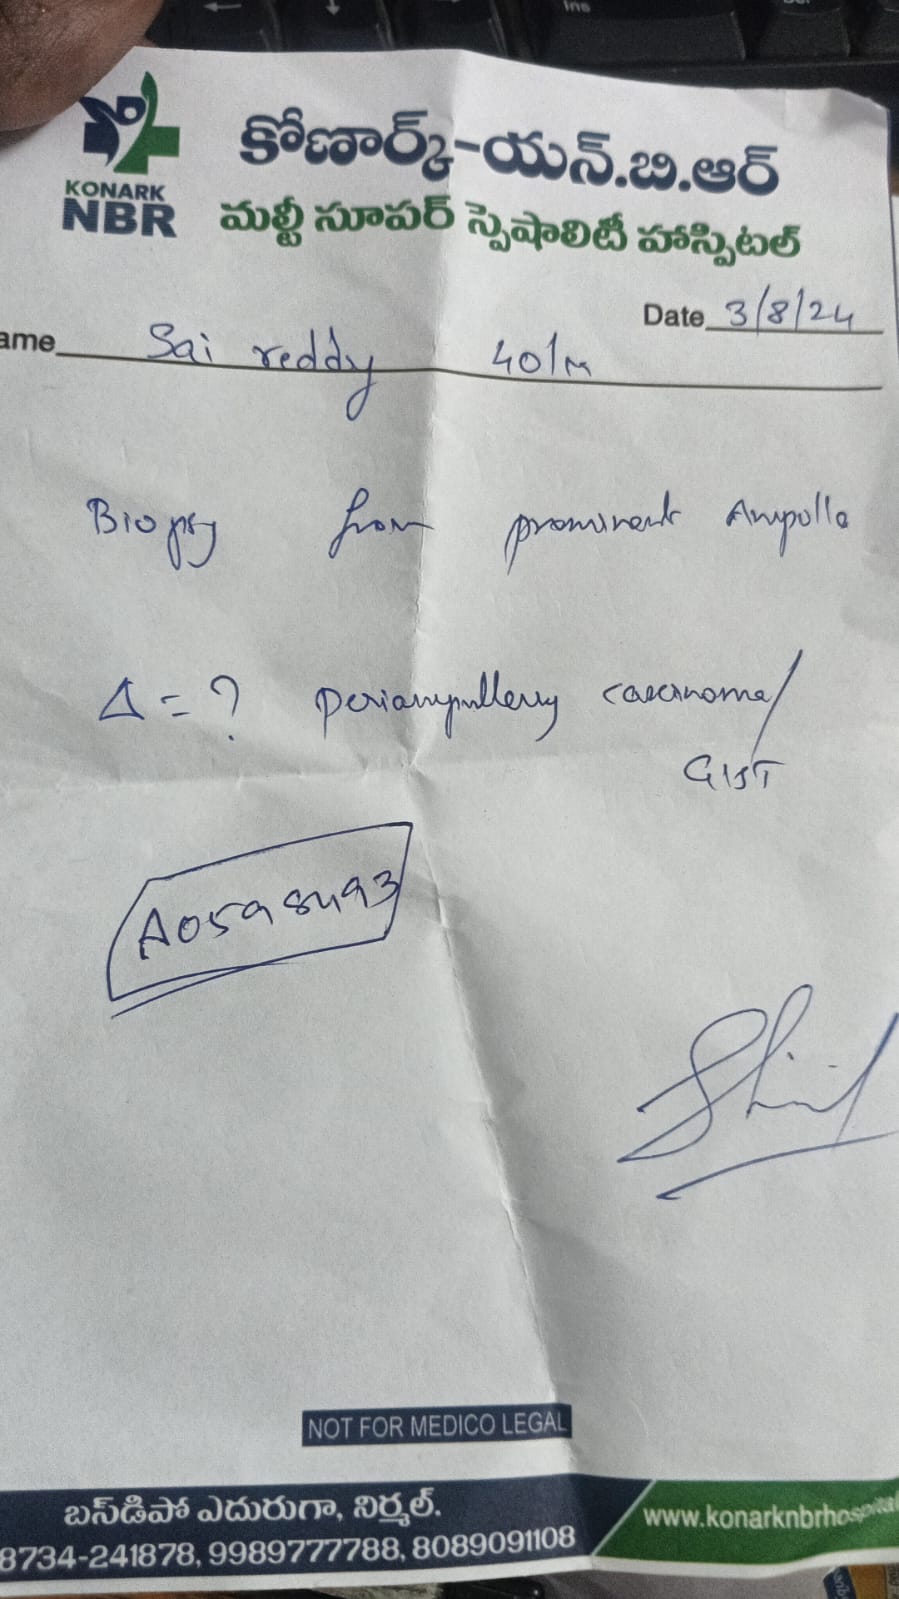 కోణార్క్-యన్.బి.ఆర్
KONARK
NBR
మల్టీ సూపర్ స్పెషాలిటీ హాస్పిటల్
Date 3/8/24
ame Sai reddy 40/M
Biopsy from prominent Ampulla
Δ = ? periampullary carcinoma/
GIST
A0598493
NOT FOR MEDICO LEGAL
బస్‌డిపో ఎదురుగా, నిర్మల్.
8734-241878, 9989777788, 8089091108
www.konarknbrhospital